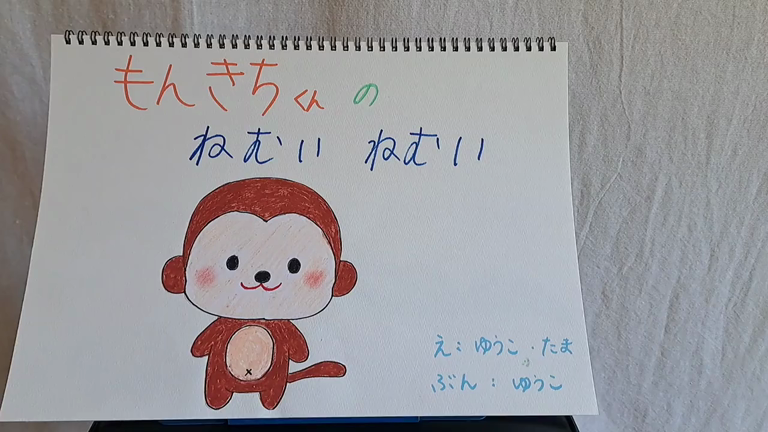 もんきちくん の
ねむい ねむい
え：ゆうこ・たま
ぶん：ゆうこ